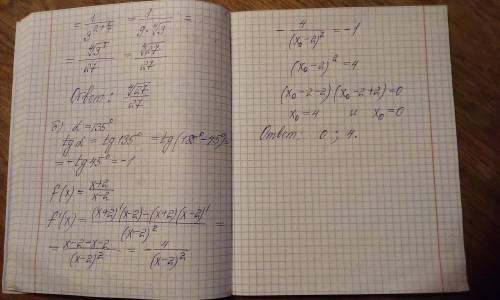 = 1/9^{2+1/4} = 1/(9·⁴√3) =
= ⁴√3³/27 = ⁴√27/27
Ответ: ⁴√27/27
б) α = 135°
tg α = tg 135° = tg(180° - 45°) =
= -tg 45° = -1
f(x) = (x+2)/(x-2)
f'(x) = ((x+2)'(x-2) - (x+2)(x-2)')/(x-2)² =
= (x-2-x-2)/(x-2)² = 4/(x-2)²
- 4/(x₀-2)² = -1
(x₀-2)² = 4
(x₀-2-2)(x₀-2+2) = 0
x₀ = 4 и x₀ = 0
Ответ: 0 ; 4.